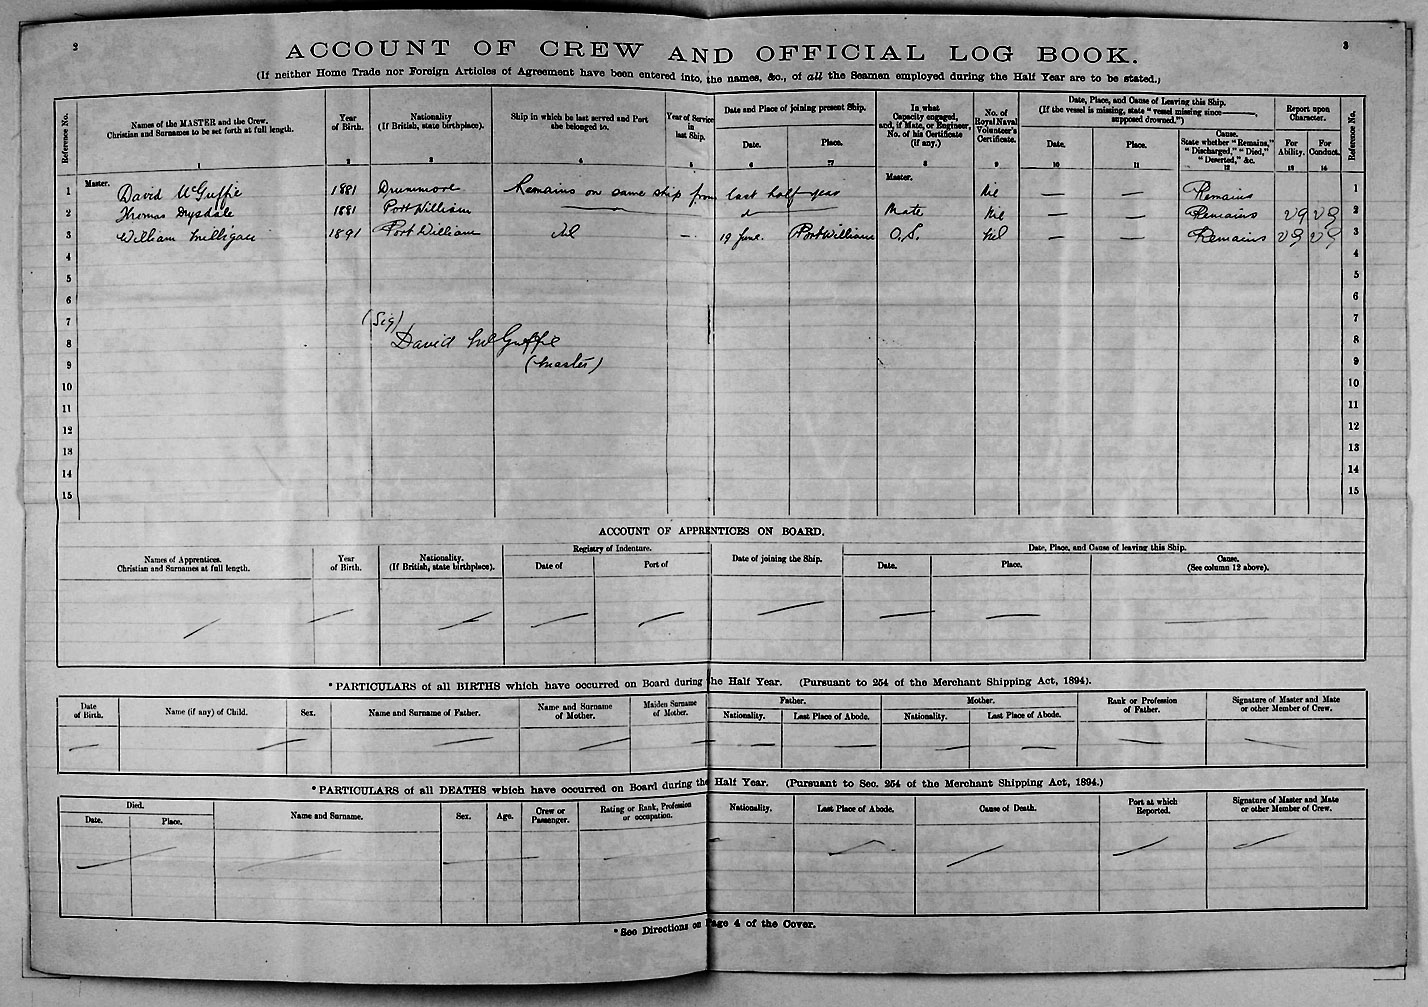 2
3
ACCOUNT OF CREW AND OFFICIAL LOG BOOK.
(If neither Home Trade nor Foreign Articles of Agreement have been entered into, the names, &c., of all the Seamen employed during the Half Year are to be stated.)
Reference No.
Names of the MASTER and the Crew.
Christian and Surnames to be set forth at full length.
1
Year
of Birth.
2
Nationality
(If British, state birthplace).
3
Ship in which he last served and Port
she belonged to.
4
Year of Service
in
last Ship.
5
Date and Place of joining present Ship.
Date.
6
Place.
7
In what
Capacity engaged,
and, if Mate, or Engineer,
No. of his Certificate
(if any.)
8
No. of
Royal Naval
Volunteer's
Certificate.
9
Date, Place, and Cause of Leaving this Ship.
(If the vessel is missing, state "vessel missing since———,
supposed drowned.")
Date.
10
Place.
11
Cause.
State whether "Remains,"
"Discharged," "Died,"
"Deserted," &c.
12
Report upon
Character.
For
Ability.
13
For
Conduct.
14
Reference No.
1 Master. David McGuffie 1881 Drummore Remains on same ship from last half year Master. Nil — — Remains 1
2 Thomas Drysdale 1881 Port William Mate Nil — — Remains VG VG 2
3 William Milligan 1891 Port William Nil — 19 June. Port William O.S. Nil — — Remains VG VG 3
4 4
5 5
6 6
7 (Sig) 7
8 David McGuffie 8
9 (Master) 9
10 10
11 11
12 12
13 13
14 14
15 15
ACCOUNT OF APPRENTICES ON BOARD.
Names of Apprentices.
Christian and Surnames at full length.
Year
of Birth.
Nationality.
(If British, state birthplace).
Registry of Indenture.
Date of
Port of
Date of joining the Ship.
Date, Place, and Cause of leaving this Ship.
Date.
Place.
Cause.
(See column 12 above).
*PARTICULARS of all BIRTHS which have occurred on Board during the Half Year. (Pursuant to 254 of the Merchant Shipping Act, 1894).
Date
of Birth.
Name (if any) of Child.
Sex.
Name and Surname of Father.
Name and Surname
of Mother.
Maiden Surname
of Mother.
Father.
Nationality.
Last Place of Abode.
Mother.
Nationality.
Last Place of Abode.
Rank or Profession
of Father.
Signature of Master and Mate
or other Member of Crew.
*PARTICULARS of all DEATHS which have occurred on Board during the Half Year. (Pursuant to Sec. 254 of the Merchant Shipping Act, 1894.)
Died.
Date.
Place.
Name and Surname.
Sex.
Age.
Crew or
Passenger.
Rating or Rank, Profession
or occupation.
Nationality.
Last Place of Abode.
Cause of Death.
Port at which
Reported.
Signature of Master and Mate
or other Member of Crew.
*See Directions on Page 4 of the Cover.